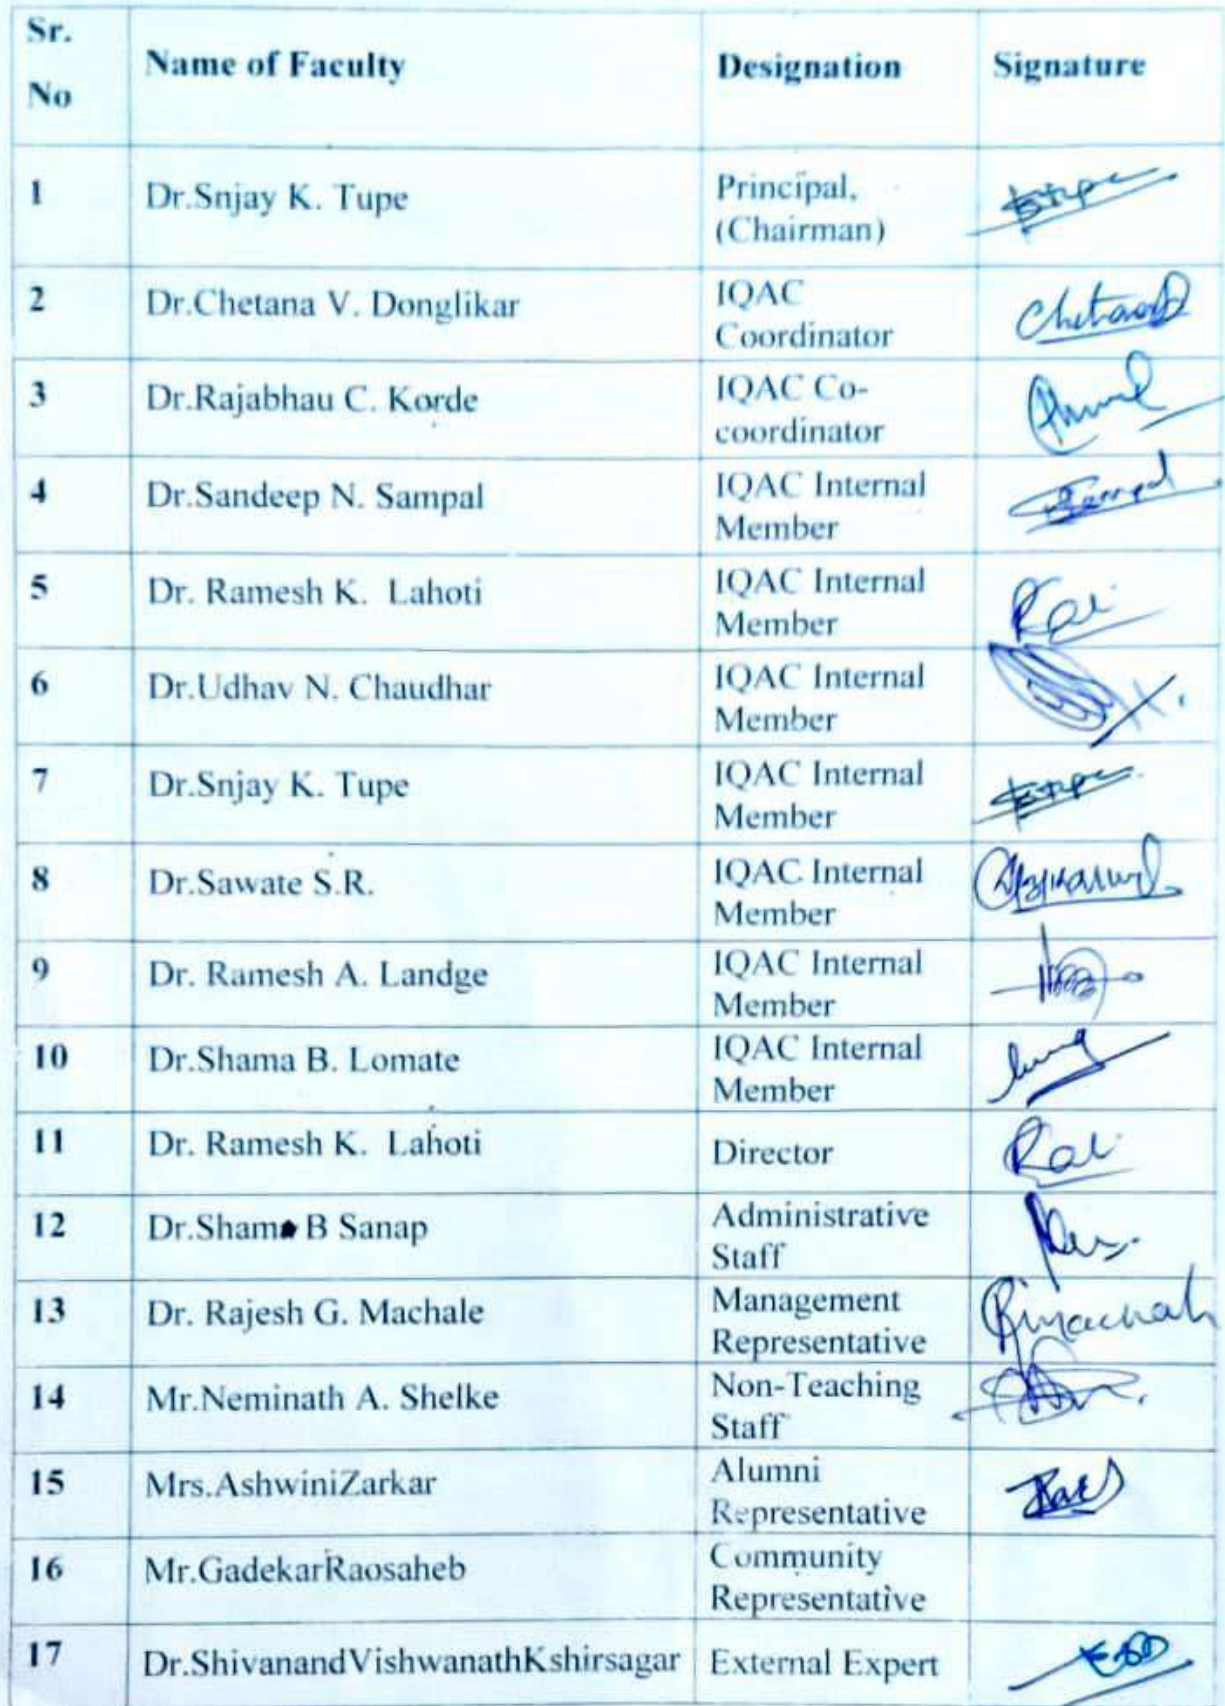 Sr.
No
Name of Faculty
Designation
Signature
1
Dr.Snjay K. Tupe
Principal,
(Chairman)
2
Dr.Chetana V. Donglikar
IQAC
Coordinator
3
Dr.Rajabhau C. Korde
IQAC Co-
coordinator
4
Dr.Sandeep N. Sampal
IQAC Internal
Member
5
Dr. Ramesh K. Lahoti
IQAC Internal
Member
6
Dr.Udhav N. Chaudhar
IQAC Internal
Member
7
Dr.Snjay K. Tupe
IQAC Internal
Member
8
Dr.Sawate S.R.
IQAC Internal
Member
9
Dr. Ramesh A. Landge
IQAC Internal
Member
10
Dr.Shama B. Lomate
IQAC Internal
Member
11
Dr. Ramesh K. Lahoti
Director
12
B Sanap
Administrative
Staff
13
Dr. Rajesh G. Machale
Management
Representative
14
Mr.Neminath A. Shelke
Non-Teaching
Staff
15
Mrs.AshwiniZarkar
Alumni
Representative
16
Mr.GadekarRaosaheb
Community
Representative
17
Dr.ShivanandVishwanathKshirsagar
External Expert